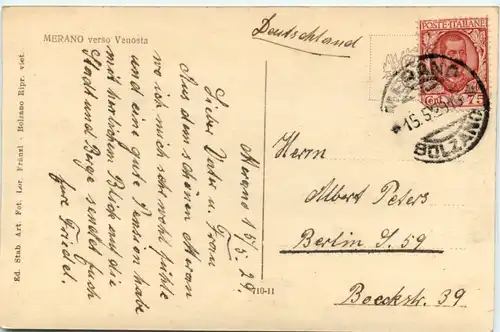 MERANO verso Venosta
Deutschland
POSTE ITALIANE
Cent. 75
MERANO
BOLZANO
Meran 15/5. 29.
Lieber Vater u. Frau
Aus dem schönen Meran
wo ich mich sehr wohl fühle
und eine gute Pension habe
mit herrlichem Blick auf die
Stadt und Berge sendet Euch
Eure Friedel.
Herrn
Albert Peters
Berlin S. 59
Boeckstr. 39
710-11
Ed. Stab Art. Fot. Lor. Fränzl - Bolzano Ripr. viet.